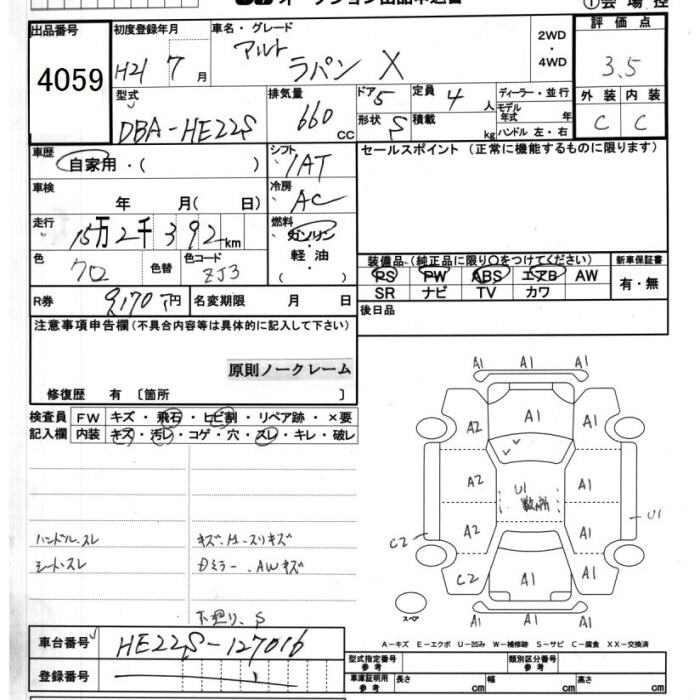 出品番号
4059
初度登録年月
H21 7 月
車名・グレード
アルト
ラパン X
2WD
・
4WD
評価点
3.5
型式
DBA-HE22S
排気量
660 CC
ドア 5
形状 S
定員 4 人
積載 kg
ディーラー・並行
モデル年式 年
ハンドル 左・右
外装 内装
C C
車歴
自家用・( )
シフト
IAT
セールスポイント (正常に機能するものに限ります)
車検
年 月( 日)
冷房
AC
走行
15万2千392km
燃料
ガソリン
・
軽油
( )
色
クロ
色替
色コード
ZJ3
装備品(純正品に限り○をつけてください)
PS PW ABS エアB AW
SR ナビ TV カワ
新車保証書
有・無
R券 9,170円
名変期限 月 日
後日品
注意事項申告欄(不具合内容等は具体的に記入して下さい)
原則ノークレーム
修復歴 有 〔箇所 〕
検査員
記入欄
FW キズ・飛石・ヒビ割・リペア跡・×要
内装 キズ・汚レ・コゲ・穴・スレ・キレ・破レ
ハンドル.スレ
シート.スレ
キズ.H.スリキズ
Dミラー.AWキズ
下廻り.S
A1 A1 A1
A2 A1 A1
A2 U1 数ヶ所 A1
A2 A1 U1
C2
C2 A1 A1
A1 A1 A1
スペア
A-キズ E-エクボ U-凹み W-補修跡 S-サビ C-腐食 XX-交換済
車台番号 HE22S-127016
登録番号
型式指定番号
参考
類別区分番号
参考
車庫証明用
参考
長さ cm 幅 cm 高さ cm